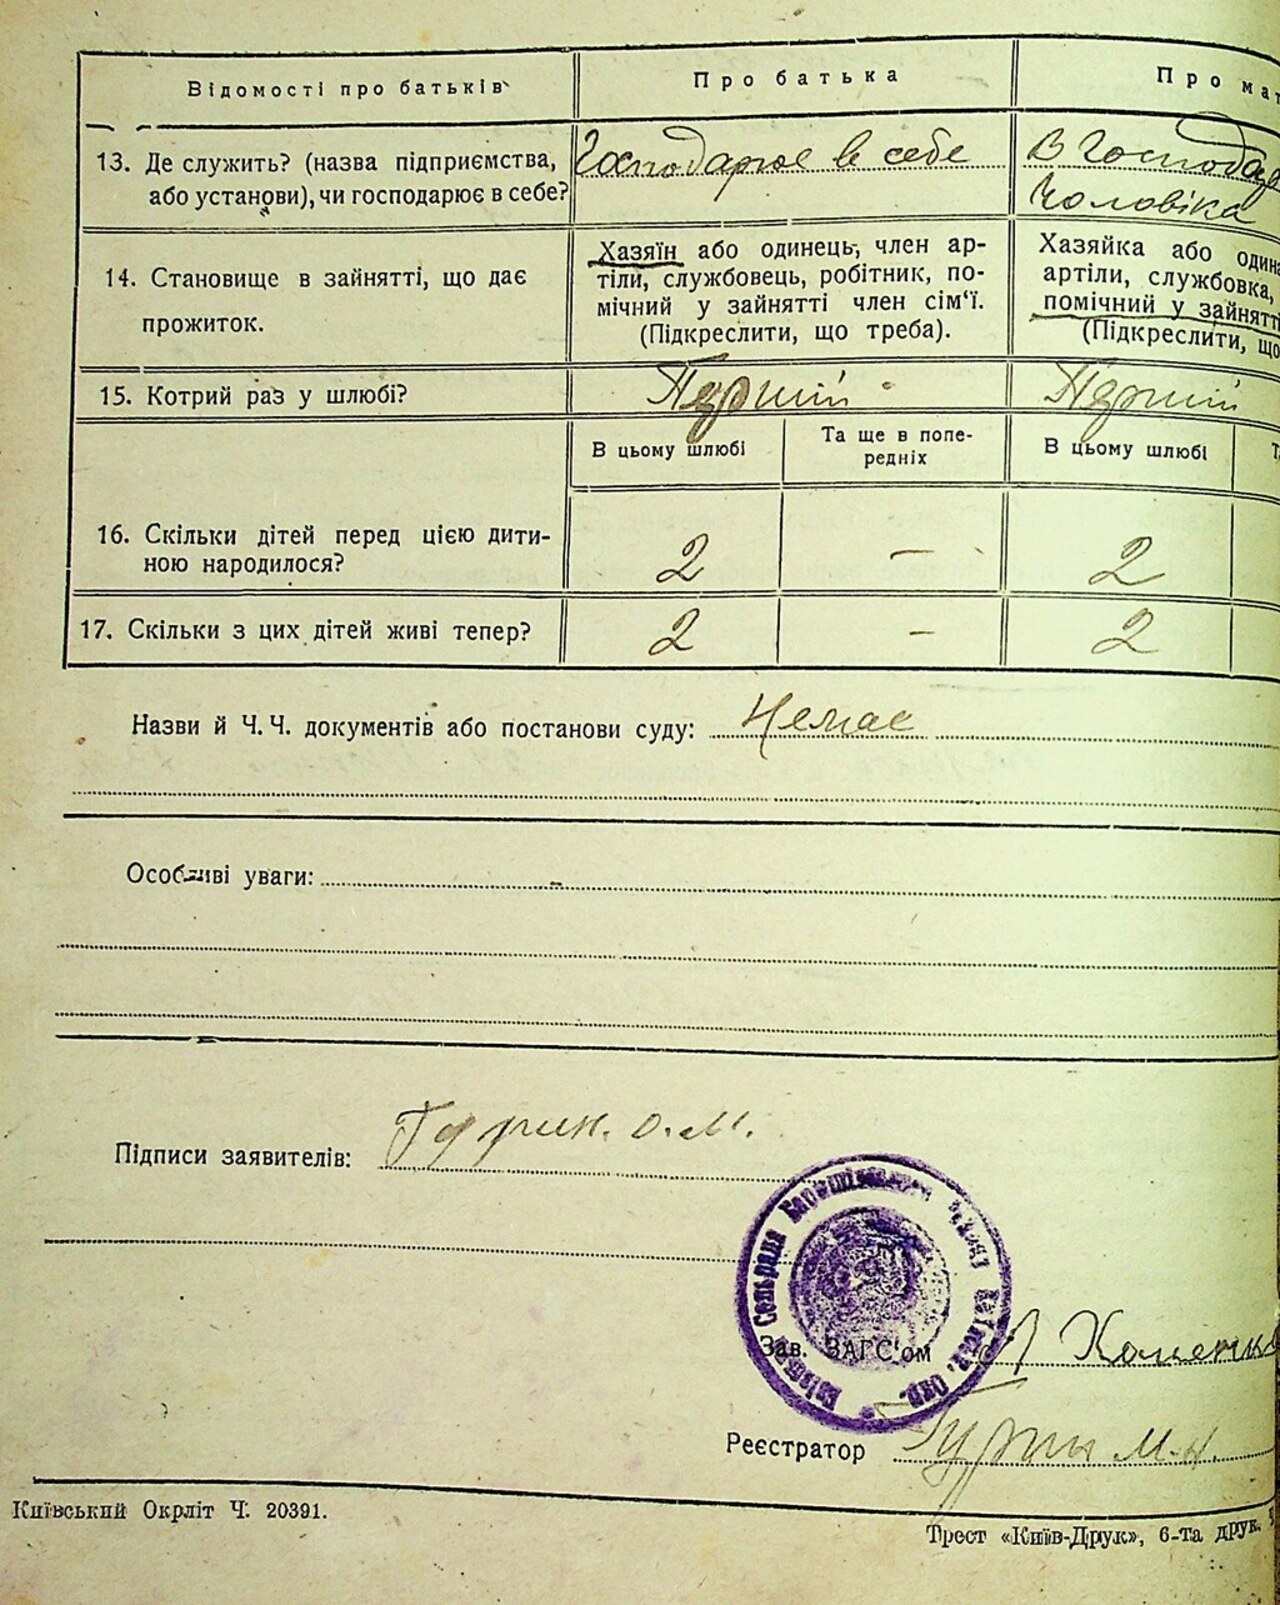 Відомості про батьків
Про батька
Про мат
13. Де служить? (назва підприємства,
або установи), чи господарює в себе?
Господарює в себе
В Господар
Чоловіка
14. Становище в зайнятті, що дає
прожиток.
Хазяїн або одинець, член ар-
тіли, службовець, робітник, по-
мічний у зайнятті член сім'ї.
(Підкреслити, що треба).
Хазяйка або одина
артіли, службовка,
помічний у зайнятті
(Підкреслити, що
15. Котрий раз у шлюбі?
Перший
Перший
В цьому шлюбі
Та ще в попе-
редніх
В цьому шлюбі
Т
16. Скільки дітей перед цією дити-
ною народилося?
2
—
2
17. Скільки з цих дітей живі тепер?
2
—
2
Назви й Ч. Ч. документів або постанови суду: Немає
Особливі уваги:
Підписи заявителів: Гурин. О. М.
Сельрада
Зав. ЗАГС'ом
Реєстратор Гурин М. Н.
Київський Окрліт Ч. 20391.
Трест «Київ-Друк», 6-та друк.